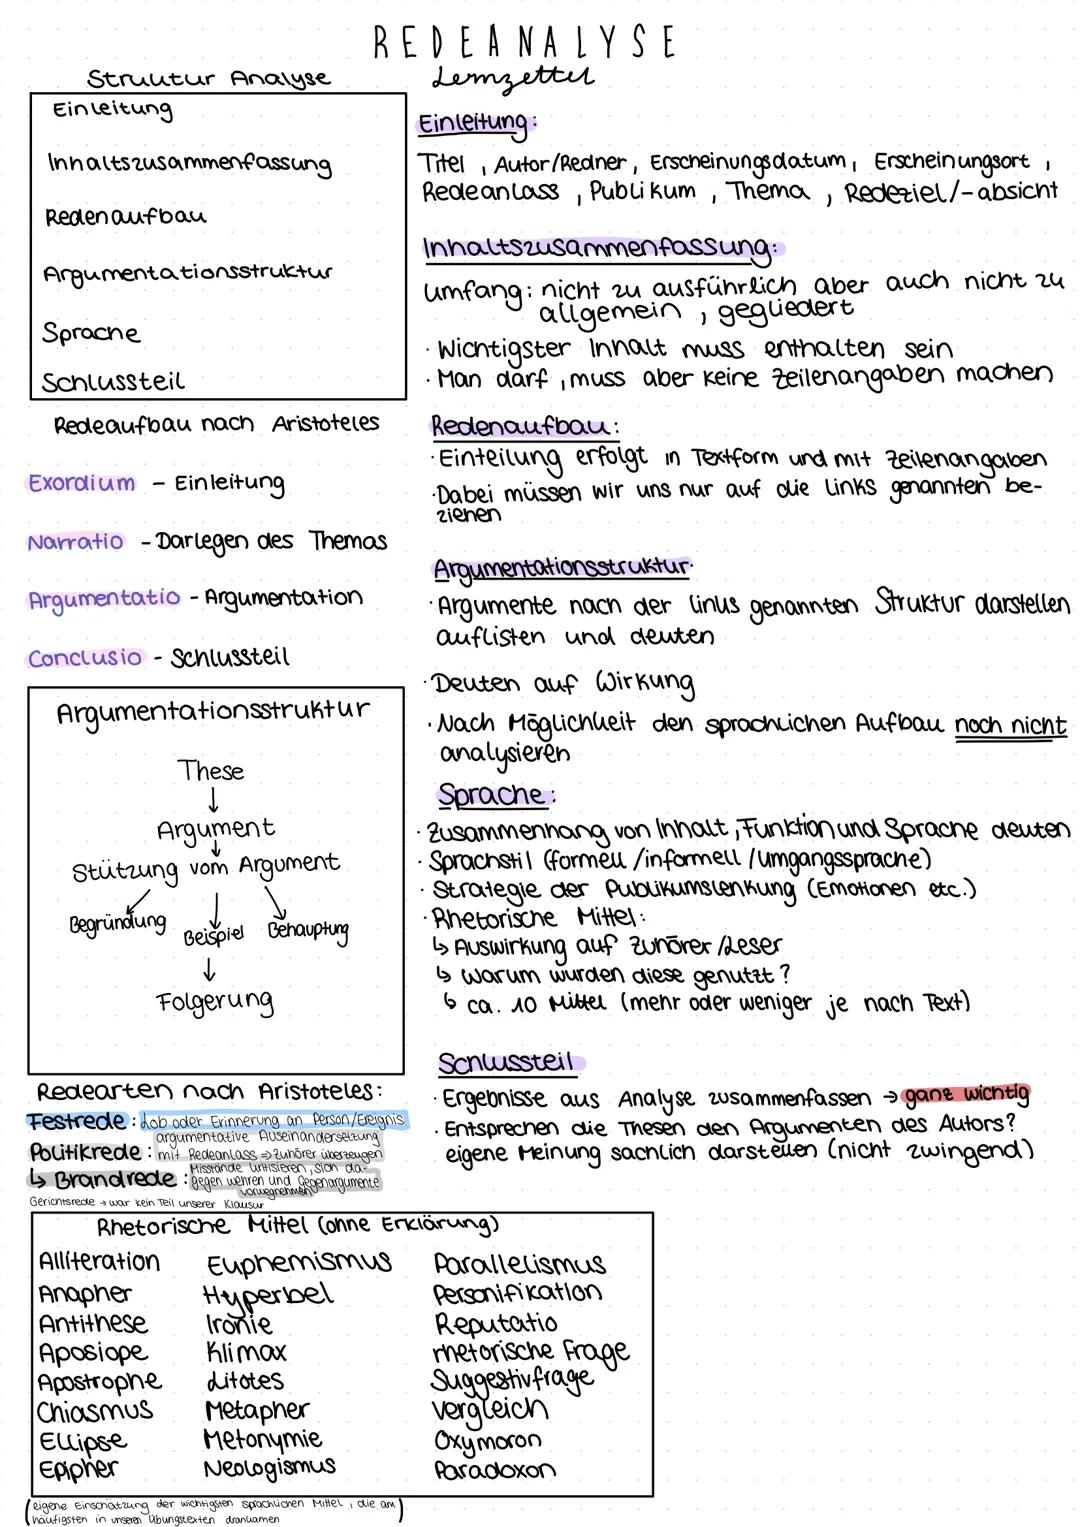 REDEANALYSE
Lernzettel
Struktur Analyse
Einleitung
Inhaltszusammenfassung
Redenaufbau
Argumentationsstruktur
Sprache
Schlussteil
Redeaufbau nach Aristoteles
Exordium - Einleitung
Narratio - Darlegen des Themas
Argumentatio - Argumentation
Conclusio - Schlussteil
Argumentationsstruktur
These
↓
Argument
↓
Stützung vom Argument
Begründung Beispiel Behauptung
↓
Folgerung
Redearten nach Aristoteles:
Festrede: Lob oder Erinnerung an Person/Ereignis
Politikrede: argumentative Auseinandersetzung
mit Redeanlass ⇒ Zuhörer überzeugen
↳ Brandrede: Misstände kritisieren, sich da-
gegen wehren und Gegenargumente
vorwegnehmen
Gerichtsrede → war kein Teil unserer Klausur
Einleitung:
Titel, Autor/Redner, Erscheinungsdatum, Erscheinungsort,
Redeanlass, Publikum, Thema, Redeziel/-absicht
Inhaltszusammenfassung:
Umfang: nicht zu ausführlich aber auch nicht zu
allgemein, gegliedert
· Wichtigster Inhalt muss enthalten sein
· Man darf, muss aber keine Zeilenangaben machen
Redenaufbau:
· Einteilung erfolgt in Textform und mit Zeilenangaben
· Dabei müssen wir uns nur auf die Links genannten be-
ziehen
Argumentationsstruktur:
· Argumente nach der links genannten Struktur darstellen
auflisten und deuten
· Deuten auf Wirkung
· Nach Möglichkeit den sprachlichen Aufbau noch nicht
analysieren
Sprache:
· Zusammenhang von Inhalt, Funktion und Sprache deuten
· Sprachstil (formell/informell/Umgangssprache)
· Strategie der Publikumslenkung (Emotionen etc.)
· Rhetorische Mittel:
↳ Auswirkung auf Zuhörer/Leser
↳ Warum wurden diese genutzt?
↳ ca. 10 Mittel (mehr oder weniger je nach Text)
Schlussteil
· Ergebnisse aus Analyse zusammenfassen → ganz wichtig
· Entsprechen die Thesen den Argumenten des Autors?
eigene Meinung sachlich darstellen (nicht zwingend)
Rhetorische Mittel (ohne Erklärung)
Alliteration Euphemismus Parallelismus
Anapher Hyperbel Personifikation
Antithese Ironie Reputatio
Aposiope Klimax rhetorische Frage
Apostrophe Litotes Suggestivfrage
Chiasmus Metapher Vergleich
Ellipse Metonymie Oxymoron
Epipher Neologismus Paradoxon
(eigene Einschätzung der wichtigsten sprachlichen Mittel, die am
häufigsten in unseren Übungstexten drankamen)